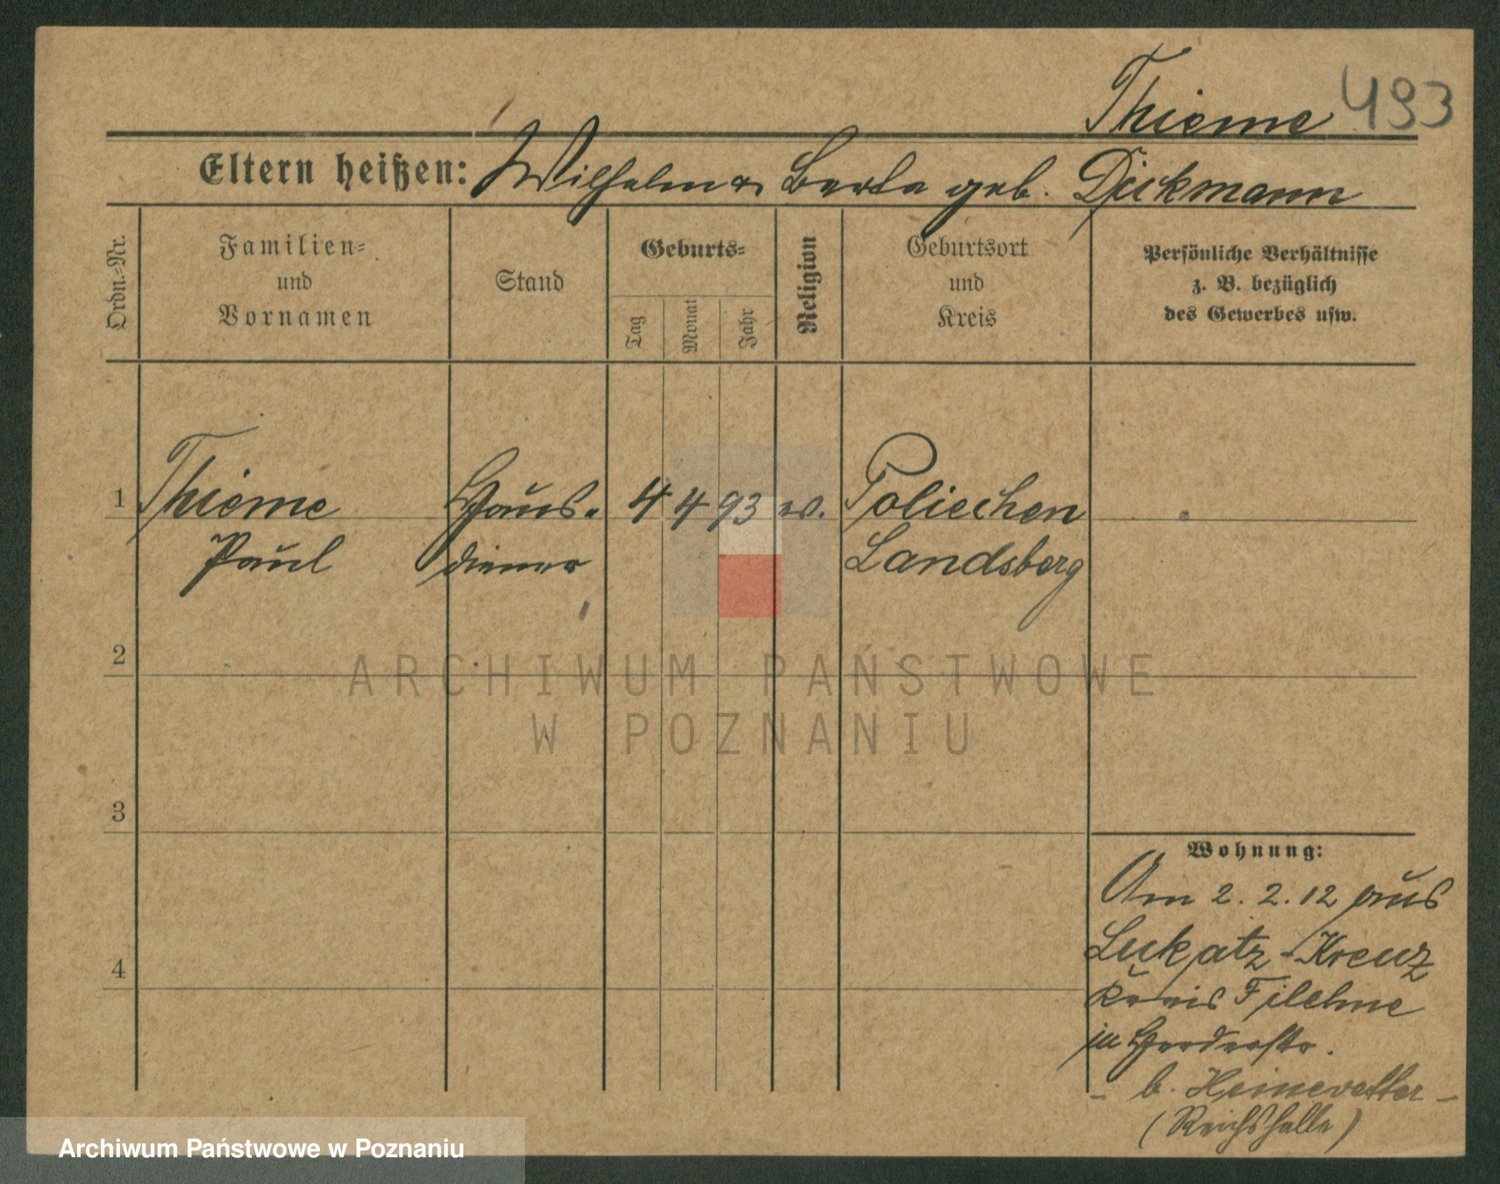 Thieme 493
Eltern heißen: Wilhelm u. Berta geb. Dickmann
Ordn.-Nr.
Familien-
und
Vornamen
Stand
Geburts-
Tag
Monat
Jahr
Religion
Geburtsort
und
Kreis
Persönliche Verhältnisse
z. B. bezüglich
des Gewerbes usw.
1 Thieme Haus- 4 4 93 ev. Poliechen
Paul diener Landsberg
2
3
4
Wohnung:
Am 2. 2. 12 aus
Lukatz-Kreuz
Kreis Filehne
in Herderstr.
- b. Heinevetter -
(Reichshalle)
ARCHIWUM PAŃSTWOWE
W POZNANIU
Archiwum Państwowe w Poznaniu